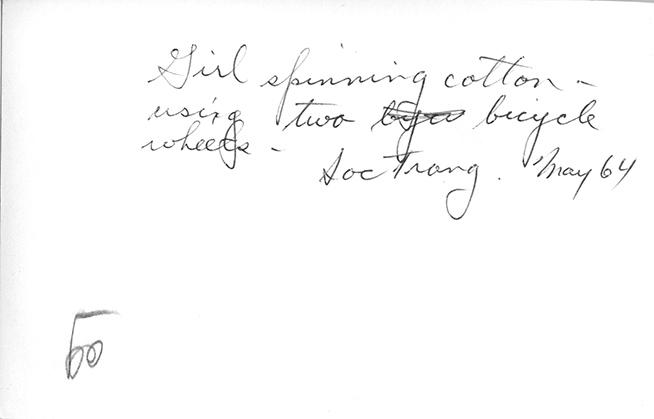 Girl spinning cotton -
using two bicycle
wheels -
Soc Trang. May 64
50